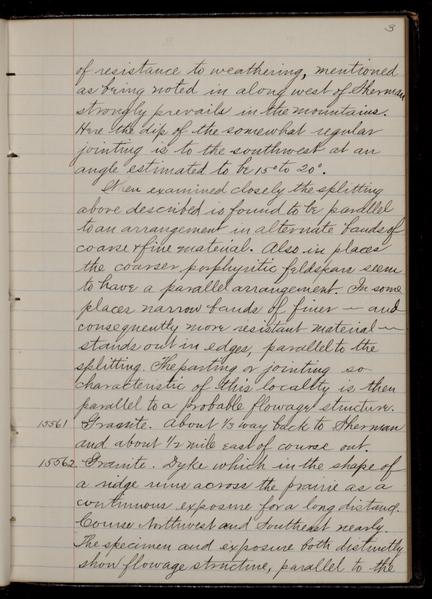 3
of resistance to weathering, mentioned
as being noted in along west of Sherman
strongly prevails in the mountains.
Here the dip of the somewhat regular
jointing is to the southwest at an
angle estimated to be 15° to 20°.
When examined closely the splitting
above described is found to be parallel
to an arrangement in alternate bands of
coarse & fine material. Also in places
the coarser porphyritic feldspars seem
to have a parallel arrangement. In some
places narrow bands of finer — and
consequently more resistant material —
stands out in edges, parallel to the
splitting. The parting or jointing so
characteristic of this locality is then
parallel to a probable flowage structure.
15561 Granite. About 1/3 way back to Sherman
and about 1/2 mile east of course out.
15562 Granite. Dyke which in the shape of
a ridge runs across the prairie as a
continuous exposure for a long distance.
Course Northwest and Southeast nearly.
The specimen and exposure both distinctly
show flowage structure, parallel to the